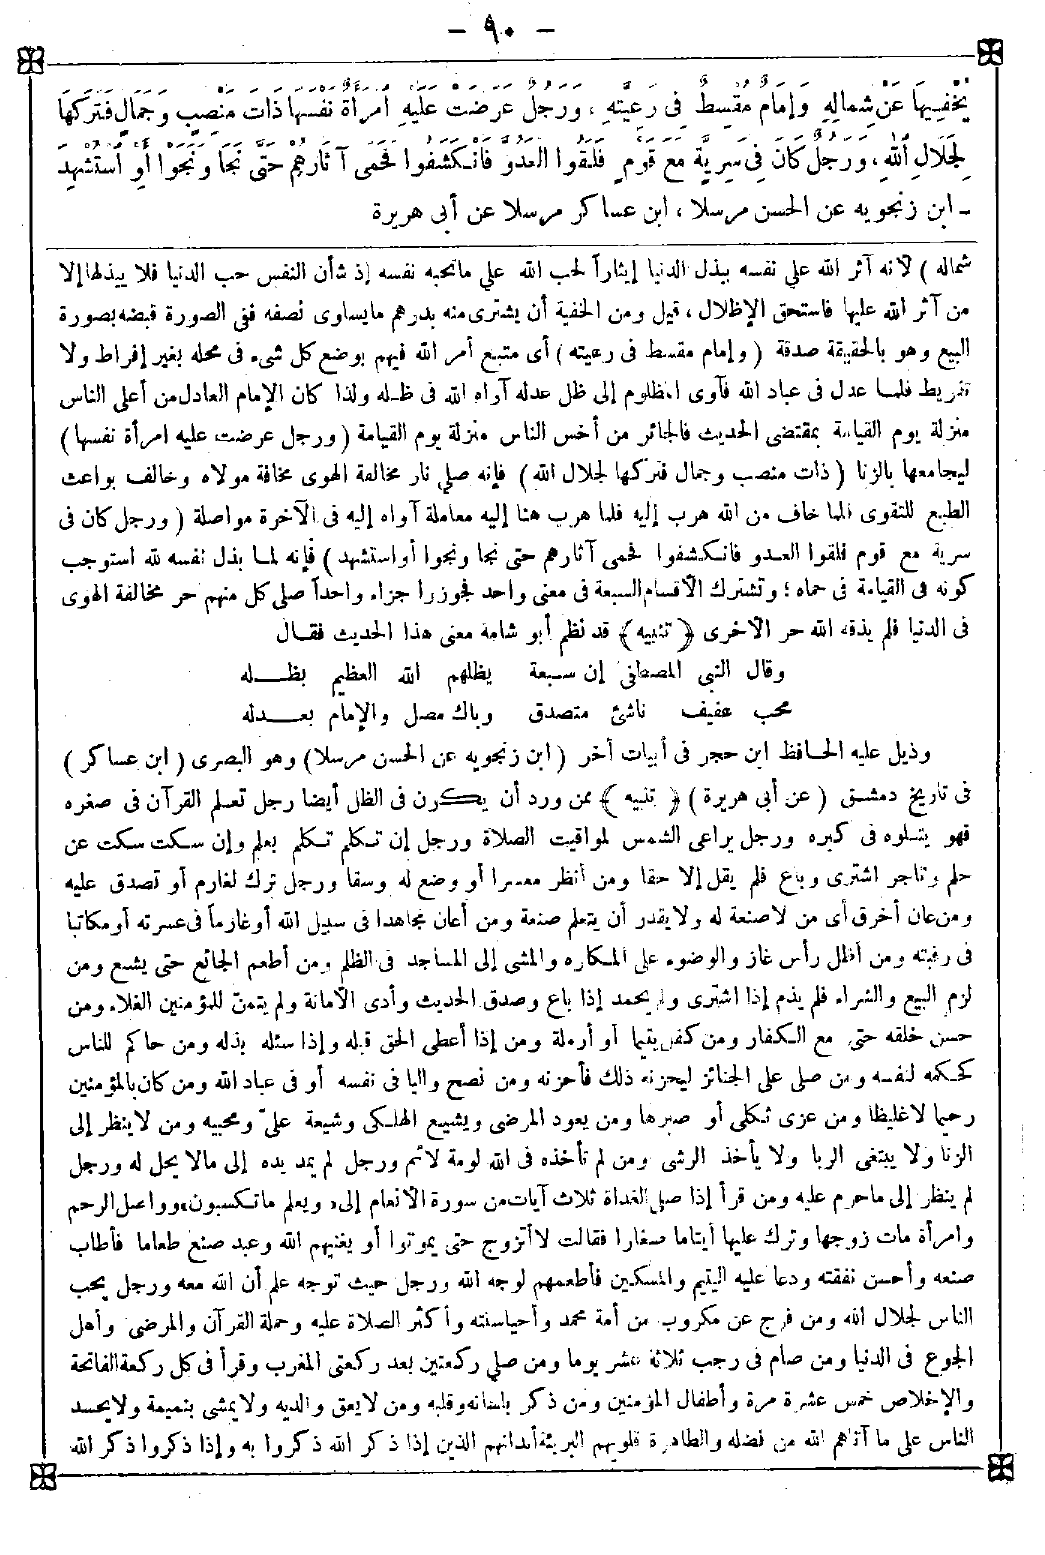 - ٩٠ -
يُخْفِيهَا عَنْ شِمالِهِ وَإِمَامٌ مُقْسِطٌ فِى رَعِيَّتِهِ ، وَرَجُلٌ عَرَضَتْ عَلَيْهِ امْرَأَةٌ نَفْسَهَا ذَاتُ مَنْصِبٍ وَجَمَالٍ فَتَرَكَهَا
لِجَلَالِ اللهِ ، وَرَجُلٌ كَانَ فِى سَرِيَّةٍ مَعَ قَوْمٍ فَلَقُوا العَدُوَّ فَانْكَشَفُوا فَحَمَى آثَارَهُمْ حَتَّى نَجَا وَنَجَوْا أَوِ اسْتُشْهِدَ
- ابن زنجويه عن الحسن مرسلا ، ابن عساكر مرسلا عن أبى هريرة
شماله ) لأنه آثر الله على نفسه ببذل الدنيا إيثاراً لحب الله على ماتحبه نفسه إذ شأن النفس حب الدنيا فلا يبذلها إلا
من آثر الله عليها فاستحق الإظلال ، قيل ومن الخفية أن يشترى منه بدرهم مايساوى نصفه ففى الصورة قبضه بصورة
البيع وهو بالحقيقة صدقة ( وإمام مقسط فى رعيته ) أى متبع أمر الله فيهم بوضع كل شىء فى محله بغير إفراط ولا
تفريط فلما عدل فى عباد الله فآوى المظلوم إلى ظل عدله آواه الله فى ظله ولذا كان الإمام العادل من أعلى الناس
منزلة يوم القيامة بمقتضى الحديث فالجائر من أخس الناس منزلة يوم القيامة ( ورجل عرضت عليه امرأة نفسها )
ليجامعها بالزنا ( ذات منصب وجمال فتركها لجلال الله ) فإنه صلى نار مخالفة الهوى مخافة مولاه وخالف بواعث
الطبع للتقوى فلما خاف من الله هرب إليه فلما هرب هنا إليه معاملة آواه إليه فى الآخرة مواصلة ( ورجل كان فى
سرية مع قوم فلقوا العدو فانكشفوا فحمى آثارهم حتى نجا ونجوا أو استشهد ) فإنه لما بذل نفسه لله استوجب
كونه فى القيامة فى حماه ؛ وتشترك الأقسام السبعة فى معنى واحد فجوزوا جزاء واحداً صلى كل منهم حر مخالفة الهوى
فى الدنيا فلم يذقه الله حر الأخرى ﴿ تنبيه ﴾ قد نظم أبو شامة معنى هذا الحديث فقال
وقال النبى المصطفى إن سبعة يظلهم الله العظيم بظله
محب عفيف ناشئ متصدق وباك مصل والإمام بعدله
وذيل عليه الحافظ ابن حجر فى أبيات أخر ( ابن زنجويه عن الحسن مرسلا ) وهو البصرى ( ابن عساكر )
فى تاريخ دمشق ( عن أبى هريرة ) ﴿ تنبيه ﴾ ممن ورد أن يكون فى الظل أيضا رجل تعلم القرآن فى صغره
فهو يتلوه فى كبره ورجل يراعى الشمس لمواقيت الصلاة ورجل إن تكلم تكلم بعلم وإن سكت سكت عن
حلم وتاجر اشترى وباع فلم يقل إلا حقا ومن أنظر معسرا أو وضع له وسقا ورجل ترك لغارم أو تصدق عليه
ومن عان أخرق أى من لاصنعة له ولا يقدر أن يتعلم صنعة ومن أعان مجاهدا فى سبيل الله أو غارماً فى عسرته أو مكاتبا
فى رقبته ومن أظل رأس غاز والوضوء على المكاره والمشى إلى المساجد فى الظلم ومن أطعم الجائع حتى يشبع ومن
لزم البيع والشراء فلم يذم إذا اشترى ولم يحمد إذا باع وصدق الحديث وأدى الأمانة ولم يتمن للمؤمنين الغلاء ومن
حسن خلقه حتى مع الكفار ومن كفل يتيما أو أرملة ومن إذا أعطى الحق قبله وإذا سئله بذله ومن حاكم للناس
كحكمه لنفسه ومن صلى على الجنائز ليحزنه ذلك فأحزنه ومن نصح واليا فى نفسه أو فى عباد الله ومن كان بالمؤمنين
رحيما لاغليظا ومن عزى ثكلى أو صبرها ومن يعود المرضى ويشيع الهلكى وشيعة علىّ ومحبيه ومن لاينظر إلى
الزنا ولا يبتغى الربا ولا يأخذ الرشى ومن لم تأخذه فى الله لومة لائم ورجل لم يمد يده إلى مالا يحل له ورجل
لم ينظر إلى ماحرم عليه ومن قرأ إذا صلى الغداة ثلاث آيات من سورة الأنعام إلى، ويعلم ماتكسبون، وواصل الرحم
وامرأة مات زوجها وترك عليها أيتاما صغارا فقالت لا أتزوج حتى يموتوا أو يغنيهم الله وعبد صنع طعاما فأطاب
صنعه وأحسن نفقته ودعا عليه اليتيم والمسكين فأطعمهم لوجه الله ورجل حيث توجه علم أن الله معه ورجل يحب
الناس لجلال الله ومن فرج عن مكروب من أمة محمد وأحيا سنته وأكثر الصلاة عليه وحملة القرآن والمرضى وأهل
الجوع فى الدنيا ومن صام فى رجب ثلاثة عشر يوما ومن صلى ركعتين بعد ركعتى المغرب وقرأ فى كل ركعة الفاتحة
والإخلاص خمس عشرة مرة وأطفال المؤمنين ومن ذكر بلسانه وقلبه ومن لايعق والديه ولا يمشى بنميمة ولا يحسد
الناس على ما آتاهم الله من فضله والطاهرة قلوبهم البريئة أبدانهم الذين إذا ذكر الله ذكروا به وإذا ذكروا ذكر الله